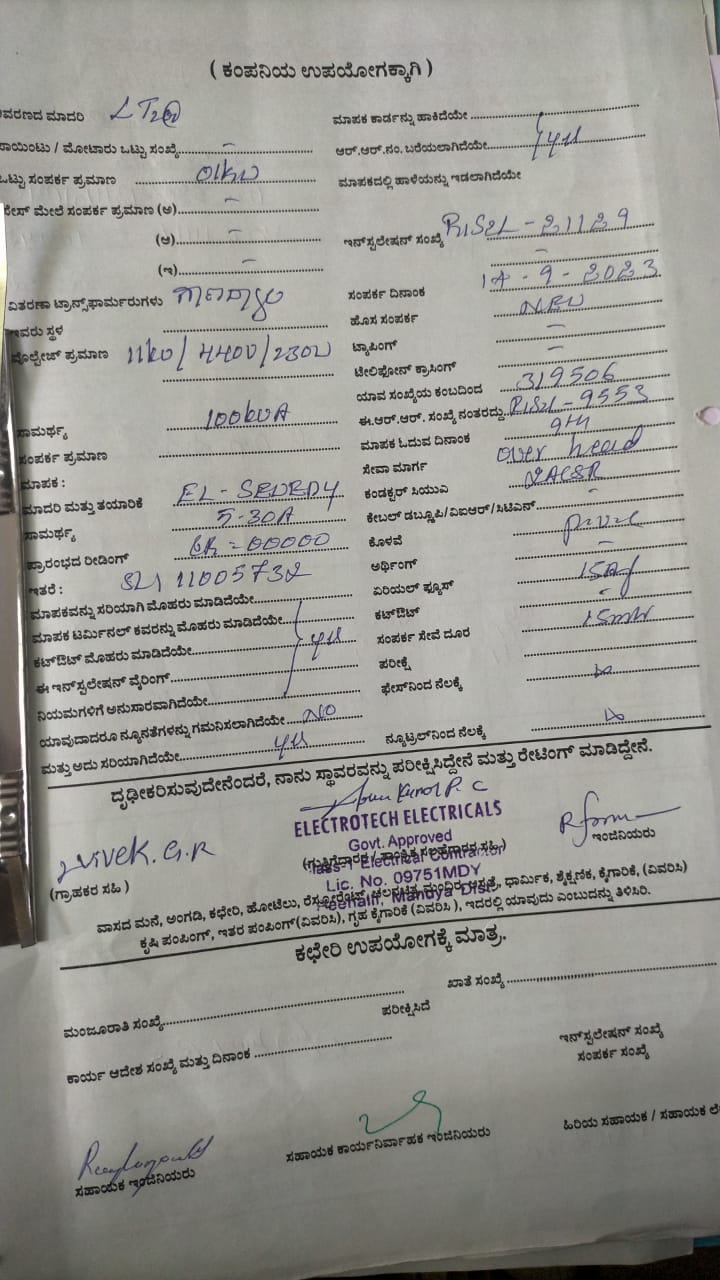 ( ಕಂಪನಿಯ ಉಪಯೋಗಕ್ಕಾಗಿ )
ವಿವರಣದ ಮಾದರಿ LT2@
ಮಾಪಕ ಕಾರ್ಡನ್ನು ಹಾಕಿದೆಯೇ
ಪಾಯಿಂಟು / ಮೋಟಾರು ಒಟ್ಟು ಸಂಖ್ಯೆ -
ಆರ್.ಆರ್.ನಂ. ಬರೆಯಲಾಗಿದೆಯೇ yes
ಒಟ್ಟು ಸಂಪರ್ಕ ಪ್ರಮಾಣ 01kw
ಮಾಪಕದಲ್ಲಿ ಹಾಳೆಯನ್ನು ಇಡಲಾಗಿದೆಯೇ
ಫೇಸ್ ಮೇಲೆ ಸಂಪರ್ಕ ಪ್ರಮಾಣ (ಅ) -
(ಆ) -
ಇನ್‌ಸ್ಟಲೇಷನ್ ಸಂಖ್ಯೆ RIS2L-21129
(ಇ) -
ಸಂಪರ್ಕ ದಿನಾಂಕ 14-9-2023
ವಿತರಣಾ ಟ್ರಾನ್ಸ್‌ಫಾರ್ಮರುಗಳು
ಹೊಸ ಸಂಪರ್ಕ NEW
ಇವರು ಸ್ಥಳ
ಟ್ಯಾಪಿಂಗ್ -
ವೊಲ್ಟೇಜ್ ಪ್ರಮಾಣ 11kv/440V/230V
ಟೆಲಿಫೋನ್ ಕ್ರಾಸಿಂಗ್ -
ಯಾವ ಸಂಖ್ಯೆಯ ಕಂಬದಿಂದ 319506
ಸಾಮರ್ಥ್ಯ 100kVA
ಈ.ಆರ್.ಆರ್. ಸಂಖ್ಯೆ ನಂತರದ್ದು RIS2L-9553
ಸಂಪರ್ಕ ಪ್ರಮಾಣ
ಮಾಪಕ ಓದುವ ದಿನಾಂಕ 9th
ಮಾಪಕ :
ಸೇವಾ ಮಾರ್ಗ over head
ಮಾದರಿ ಮತ್ತು ತಯಾರಿಕೆ
ಕಂಡಕ್ಟರ್ ಸಿಯುಎ
ಸಾಮರ್ಥ್ಯ 5-30A
ಕೇಬಲ್ ಡಬ್ಲೂಪಿ/ವಿಐಆರ್/ಸಿಟಿಎಸ್ -
ಪ್ರಾರಂಭದ ರೀಡಿಂಗ್ 00000
ಕೊಳವೆ
ಇತರೆ :
ಅರ್ಥಿಂಗ್ -
ಮಾಪಕವನ್ನು ಸರಿಯಾಗಿ ಮೊಹರು ಮಾಡಿದೆಯೇ
ಏರಿಯಲ್ ಫ್ಯೂಸ್
ಮಾಪಕ ಟರ್ಮಿನಲ್ ಕವರನ್ನು ಮೊಹರು ಮಾಡಿದೆಯೇ
ಕಟ್‌ಔಟ್ -
ಕಟ್‌ಔಟ್ ಮೊಹರು ಮಾಡಿದೆಯೇ yes
ಸಂಪರ್ಕ ಸೇವೆ ದೂರ
ಈ ಇನ್‌ಸ್ಟಲೇಷನ್ ವೈರಿಂಗ್
ಪರೀಕ್ಷೆ
ನಿಯಮಗಳಿಗೆ ಅನುಸಾರವಾಗಿದೆಯೇ
ಫೇಸ್‌ನಿಂದ ನೆಲಕ್ಕೆ
ಯಾವುದಾದರೂ ನ್ಯೂನತೆಗಳನ್ನು ಗಮನಿಸಲಾಗಿದೆಯೇ NO
ಮತ್ತು ಅದು ಸರಿಯಾಗಿದೆಯೇ yes
ನ್ಯೂಟ್ರಲ್‌ನಿಂದ ನೆಲಕ್ಕೆ
ದೃಢೀಕರಿಸುವುದೇನೆಂದರೆ, ನಾನು ಸ್ಥಾವರವನ್ನು ಪರೀಕ್ಷಿಸಿದ್ದೇನೆ ಮತ್ತು ರೇಟಿಂಗ್ ಮಾಡಿದ್ದೇನೆ.
ELECTROTECH ELECTRICALS
Govt. Approved
Class-1 Electrical Contractor
Lic. No. 09751MDY
Mandya Dist.
Vivek. G.R
(ಗ್ರಾಹಕರ ಸಹಿ )
(ಗುತ್ತಿಗೆದಾರರ / ತಾಂತ್ರಿಕ ಸಲಹೆಗಾರರ ಸಹಿ )
ಇಂಜಿನಿಯರು
ವಾಸದ ಮನೆ, ಅಂಗಡಿ, ಕಛೇರಿ, ಹೋಟೆಲು, ರೆಸ್ಟೋರೆಂಟ್, ಚಲನಚಿತ್ರ ಮಂದಿರ, ಆಸ್ಪತ್ರೆ, ಧಾರ್ಮಿಕ, ಶೈಕ್ಷಣಿಕ, ಕೈಗಾರಿಕೆ, (ವಿವರಿಸಿ)
ಕೃಷಿ ಪಂಪಿಂಗ್, ಇತರ ಪಂಪಿಂಗ್ (ವಿವರಿಸಿ), ಗೃಹ ಕೈಗಾರಿಕೆ (ವಿವರಿಸಿ ), ಇದರಲ್ಲಿ ಯಾವುದು ಎಂಬುದನ್ನು ತಿಳಿಸಿರಿ.
ಕಛೇರಿ ಉಪಯೋಗಕ್ಕೆ ಮಾತ್ರ.
ಮಂಜೂರಾತಿ ಸಂಖ್ಯೆ
ಖಾತೆ ಸಂಖ್ಯೆ
ಪರೀಕ್ಷಿಸಿದೆ
ಕಾರ್ಯ ಆದೇಶ ಸಂಖ್ಯೆ ಮತ್ತು ದಿನಾಂಕ
ಇನ್‌ಸ್ಟಲೇಷನ್ ಸಂಖ್ಯೆ
ಸಂಪರ್ಕ ಸಂಖ್ಯೆ
ಸಹಾಯಕ ಇಂಜಿನಿಯರು
ಸಹಾಯಕ ಕಾರ್ಯನಿರ್ವಾಹಕ ಇಂಜಿನಿಯರು
ಹಿರಿಯ ಸಹಾಯಕ / ಸಹಾಯಕ